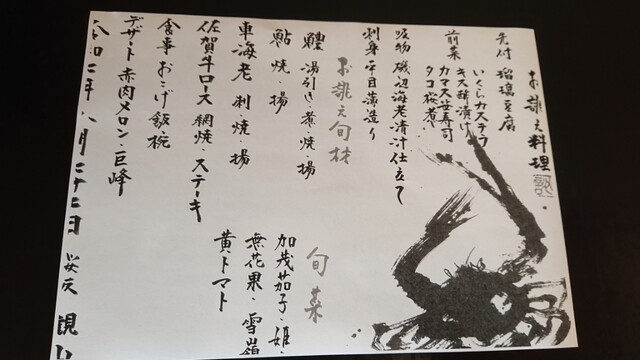 お誂え料理
先付 瑠璃豆腐
前菜 いくらカステラ
キス酢漬け
カマス笹寿司
タコ桜煮
吸物 磯辺海老清汁仕立て
刺身 平目薄造り
お誂え旬材
鱧 湯引き・煮・焼・揚
鮎 焼・揚
車海老 刺・焼・揚
佐賀牛ロース 網焼・ステーキ
食事 おこげ飯・椀
デザート 赤肉メロン・巨峰
旬菜
加茂茄子・姫
無花果・雪嶺
黄トマト
令和二年八月二十二日